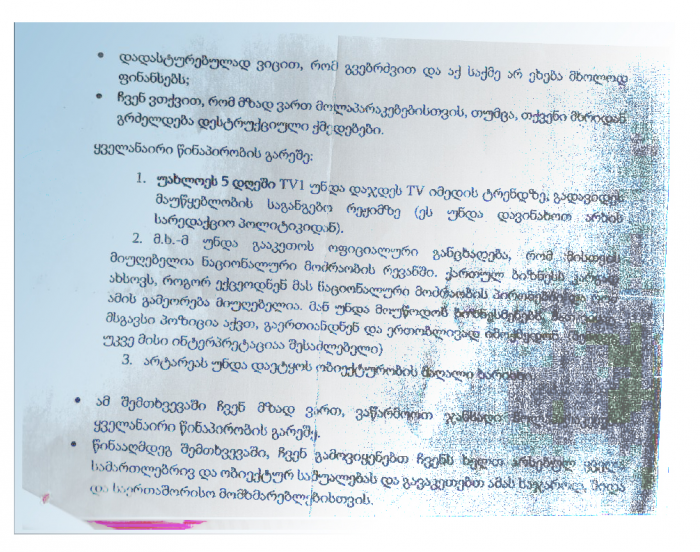 • დადასტურებულად ვიცით, რომ გვებრძვით და აქ საქმე არ ეხება მხოლოდ
ფინანსებს;
• ჩვენ ვთქვით, რომ მზად ვართ მოლაპარაკებებისთვის, თუმცა, თქვენი მხრიდან
გრძელდება დესტრუქციული ქმედებები.
ყველანაირი წინაპირობის გარეშე:
1. უახლოეს 5 დღეში TV1 უნდა დაჯდეს TV იმედის ტრენდზე, გადავიდეს
მაუწყებლობის საგანგებო რეჟიმზე (ეს უნდა დავინახოთ არხის
სარედაქციო პოლიტიკიდან).
2. მ.ხ.-მ უნდა გააკეთოს ოფიციალური განცხადება, რომ მისთვის
მიუღებელია ნაციონალური მოძრაობის რევანში. ქართულ ბიზნესს კარგად
ახსოვს, როგორ ექცეოდნენ მას ნაციონალური მოძრაობის პირობებში და რომ
ამის გამეორება მიუღებელია. მან უნდა მოუწოდოს ბიზნესმენებს,
მსგავსი პოზიცია აქვთ, გაერთიანდნენ და ერთობლივად იმოქმედონ.
უკვე მისი ინტერპრეტაციაა შესაძლებელი)
3. არტარეას უნდა დაეტყოს ობიექტურობის მაღალი ხარისხი
• ამ შემთხვევაში ჩვენ მზად ვართ, ვაწარმოოთ ჯანსაღი მოლაპარაკებები
ყველანაირი წინაპირობის გარეშე.
• წინააღმდეგ შემთხვევაში, ჩვენ გამოვიყენებთ ჩვენს ხელთ არსებულ ყველა
სამართლებრივ და ობიექტურ საშუალებას და გავაკეთებთ ამას საჯაროდ, შიდა
და საერთაშორისო მომხმარებლებისთვის.